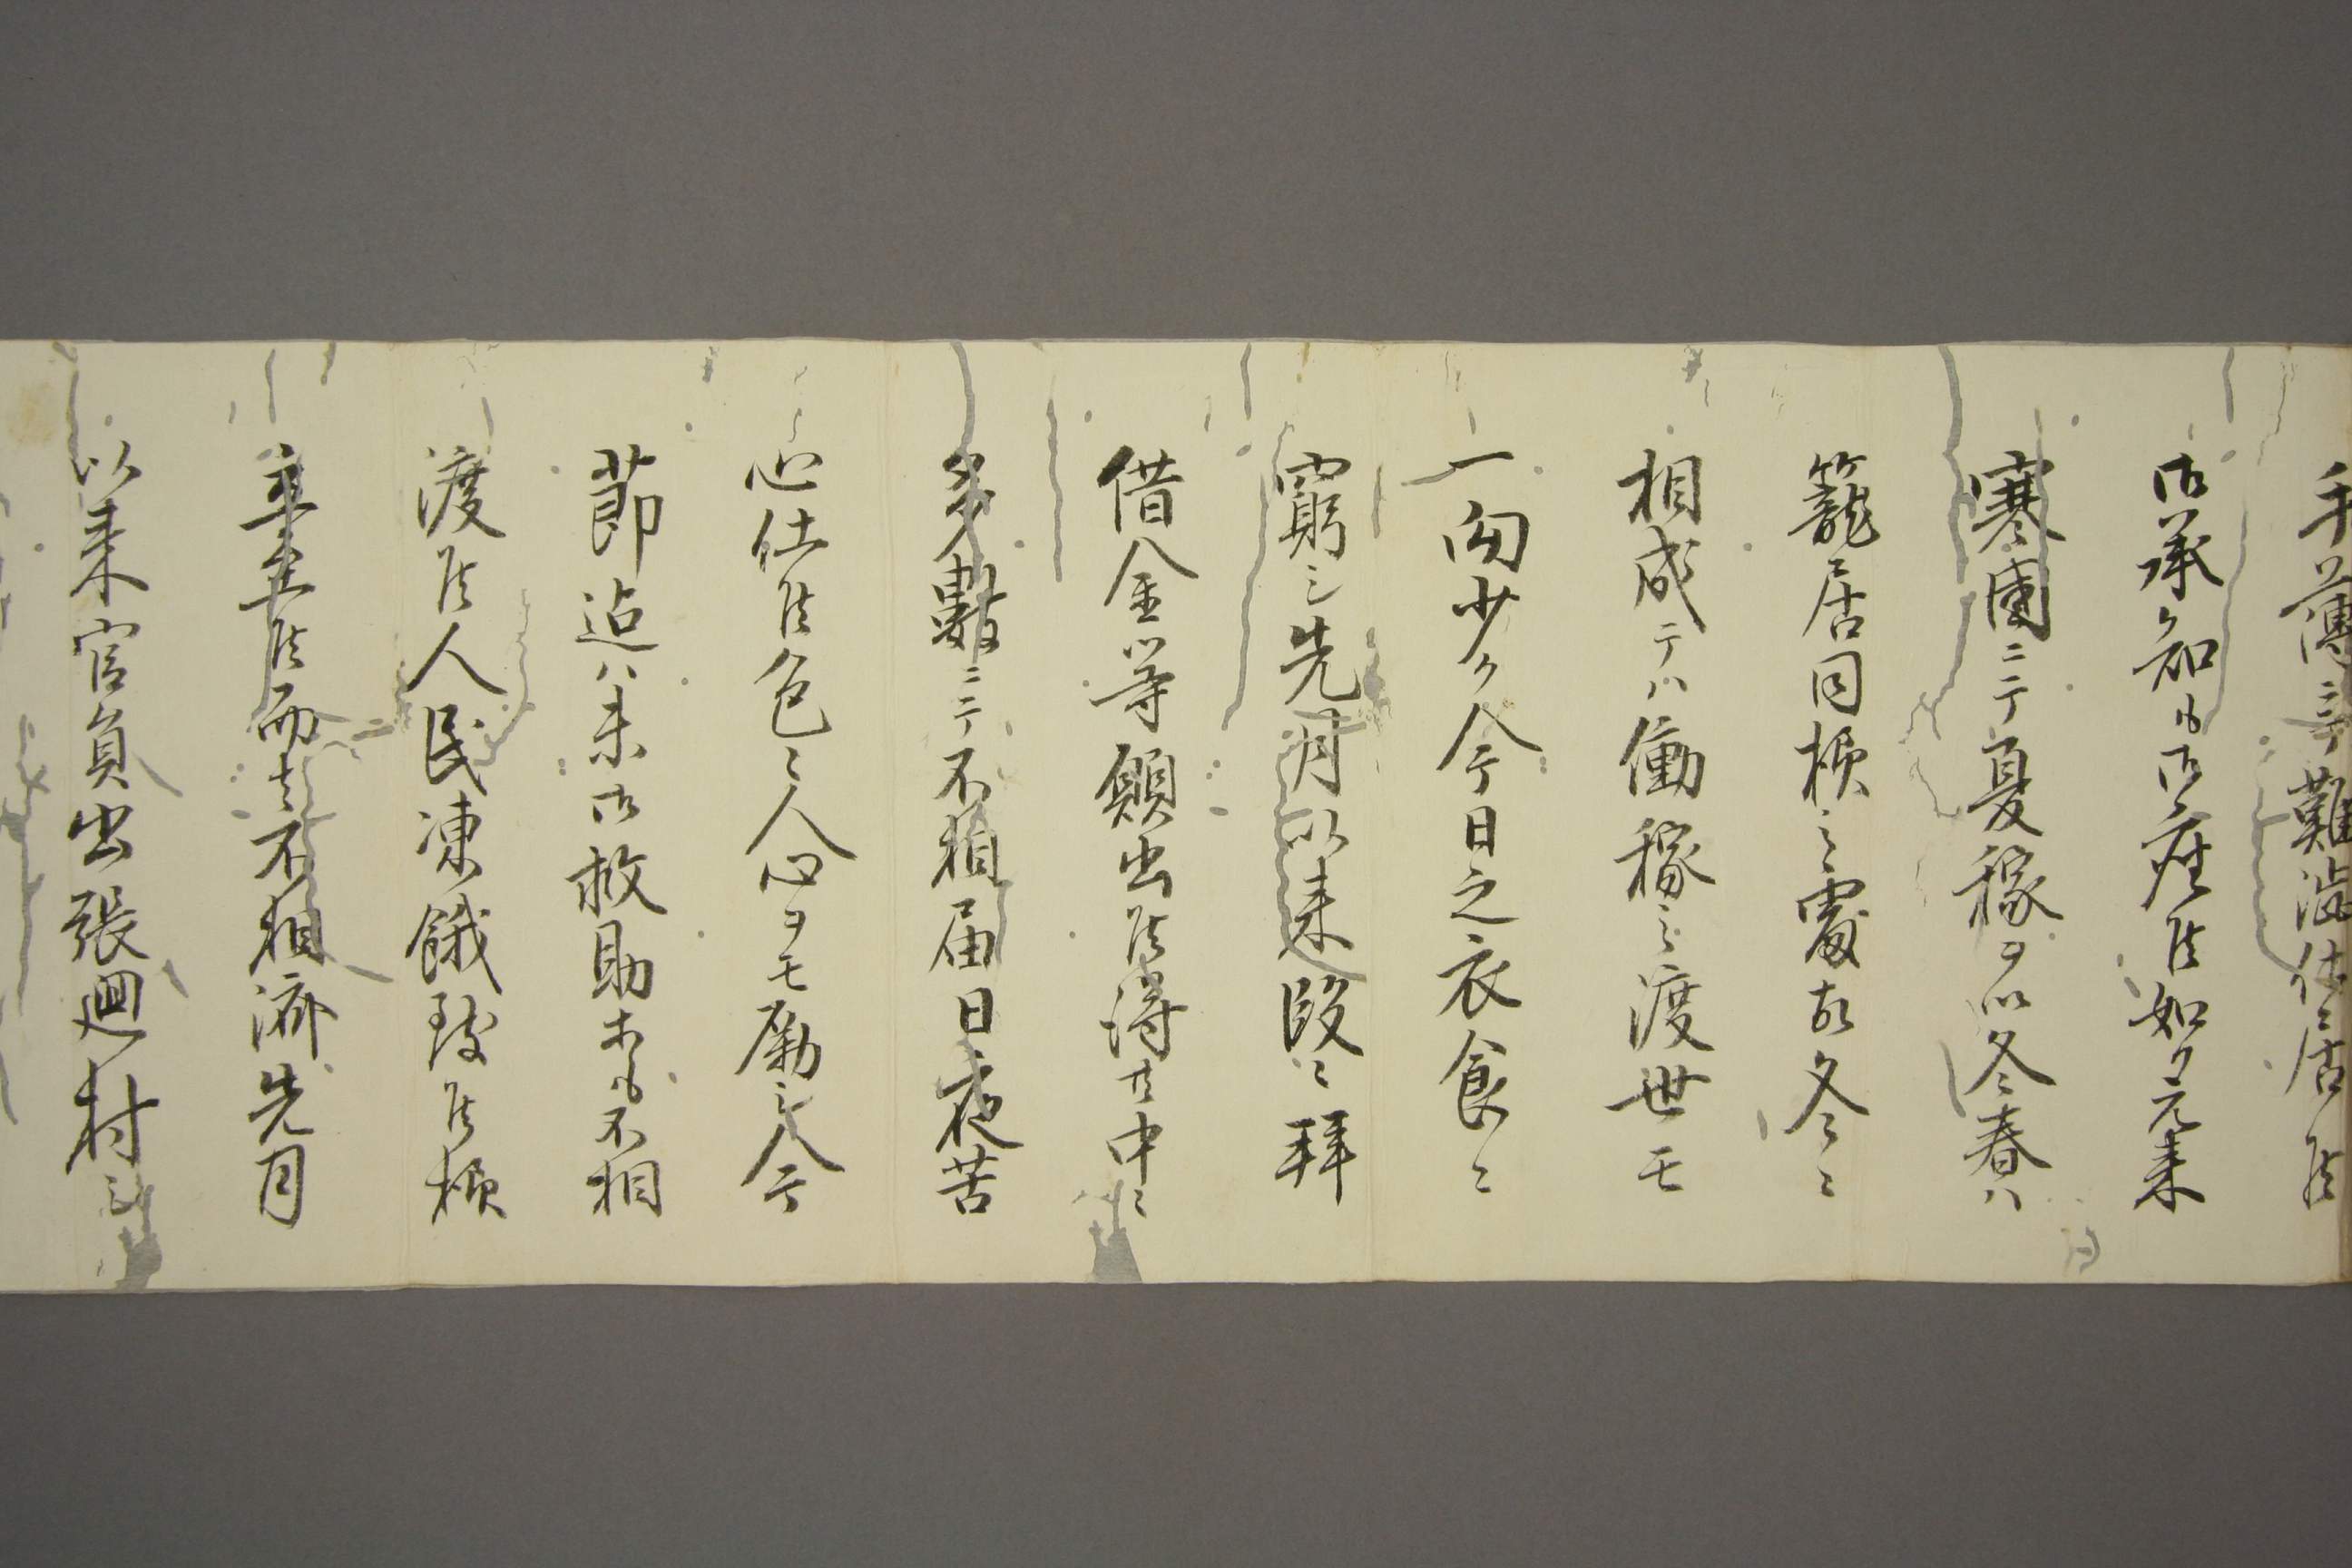 手薄ニテ難渋仕居候
御承知モ御座候如ク元来
寒国ニテ夏稼ヲ以冬春ハ
籠居同様之処故冬ニ
相成テハ働稼之渡世モ
一向少ク今日之衣食ニ
窮シ先月以来段々拝
借金等願出候得共中々
多数ニテ不相届日夜苦
心仕候色々人心ヲモ励シ今
節迠ハ未御救助等も不相
渡候人民凍餓致候様
立至候而者不相済先月
以来官員出張廻村